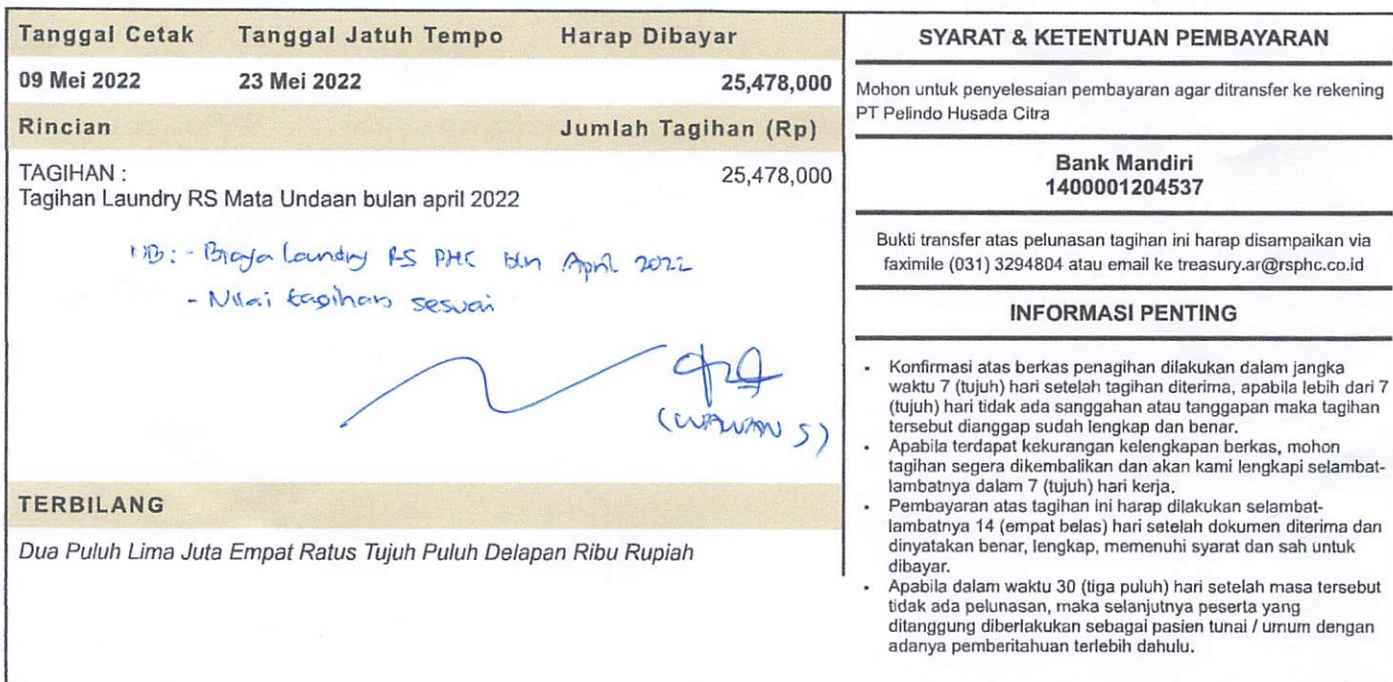 Tanggal Cetak Tanggal Jatuh Tempo Harap Dibayar
09 Mei 2022 23 Mei 2022 25,478,000
Rincian Jumlah Tagihan (Rp)
TAGIHAN : 25,478,000
Tagihan Laundry RS Mata Undaan bulan april 2022
NB: - Biaya laundry RS PHC bln April 2022
- Nilai tagihan sesuai
(WAWAN S)
TERBILANG
Dua Puluh Lima Juta Empat Ratus Tujuh Puluh Delapan Ribu Rupiah
SYARAT & KETENTUAN PEMBAYARAN
Mohon untuk penyelesaian pembayaran agar ditransfer ke rekening
PT Pelindo Husada Citra
Bank Mandiri
1400001204537
Bukti transfer atas pelunasan tagihan ini harap disampaikan via
faximile (031) 3294804 atau email ke treasury.ar@rsphc.co.id
INFORMASI PENTING
• Konfirmasi atas berkas penagihan dilakukan dalam jangka
waktu 7 (tujuh) hari setelah tagihan diterima, apabila lebih dari 7
(tujuh) hari tidak ada sanggahan atau tanggapan maka tagihan
tersebut dianggap sudah lengkap dan benar.
• Apabila terdapat kekurangan kelengkapan berkas, mohon
tagihan segera dikembalikan dan akan kami lengkapi selambat-
lambatnya dalam 7 (tujuh) hari kerja.
• Pembayaran atas tagihan ini harap dilakukan selambat-
lambatnya 14 (empat belas) hari setelah dokumen diterima dan
dinyatakan benar, lengkap, memenuhi syarat dan sah untuk
dibayar.
• Apabila dalam waktu 30 (tiga puluh) hari setelah masa tersebut
tidak ada pelunasan, maka selanjutnya peserta yang
ditanggung diberlakukan sebagai pasien tunai / umum dengan
adanya pemberitahuan terlebih dahulu.